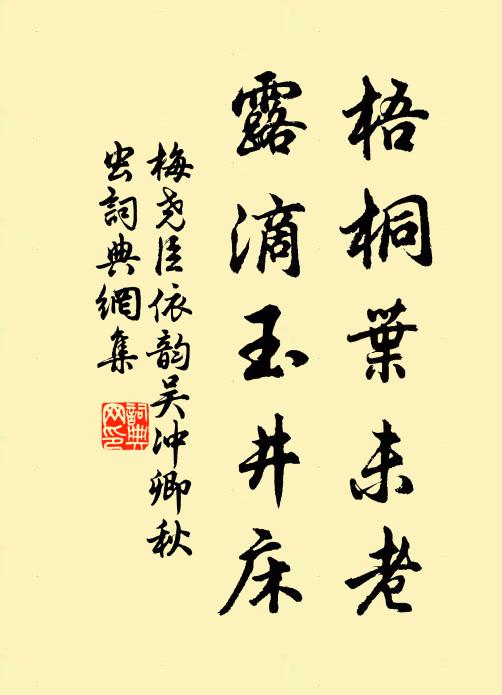 梧桐葉未老
露滴玉井床
梅尧臣依韵吴冲卿秋
虫詞典網集
詞典
网印